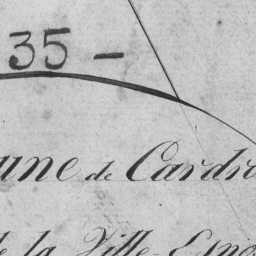 35 -
une de Cardro
de la Ville-Espo